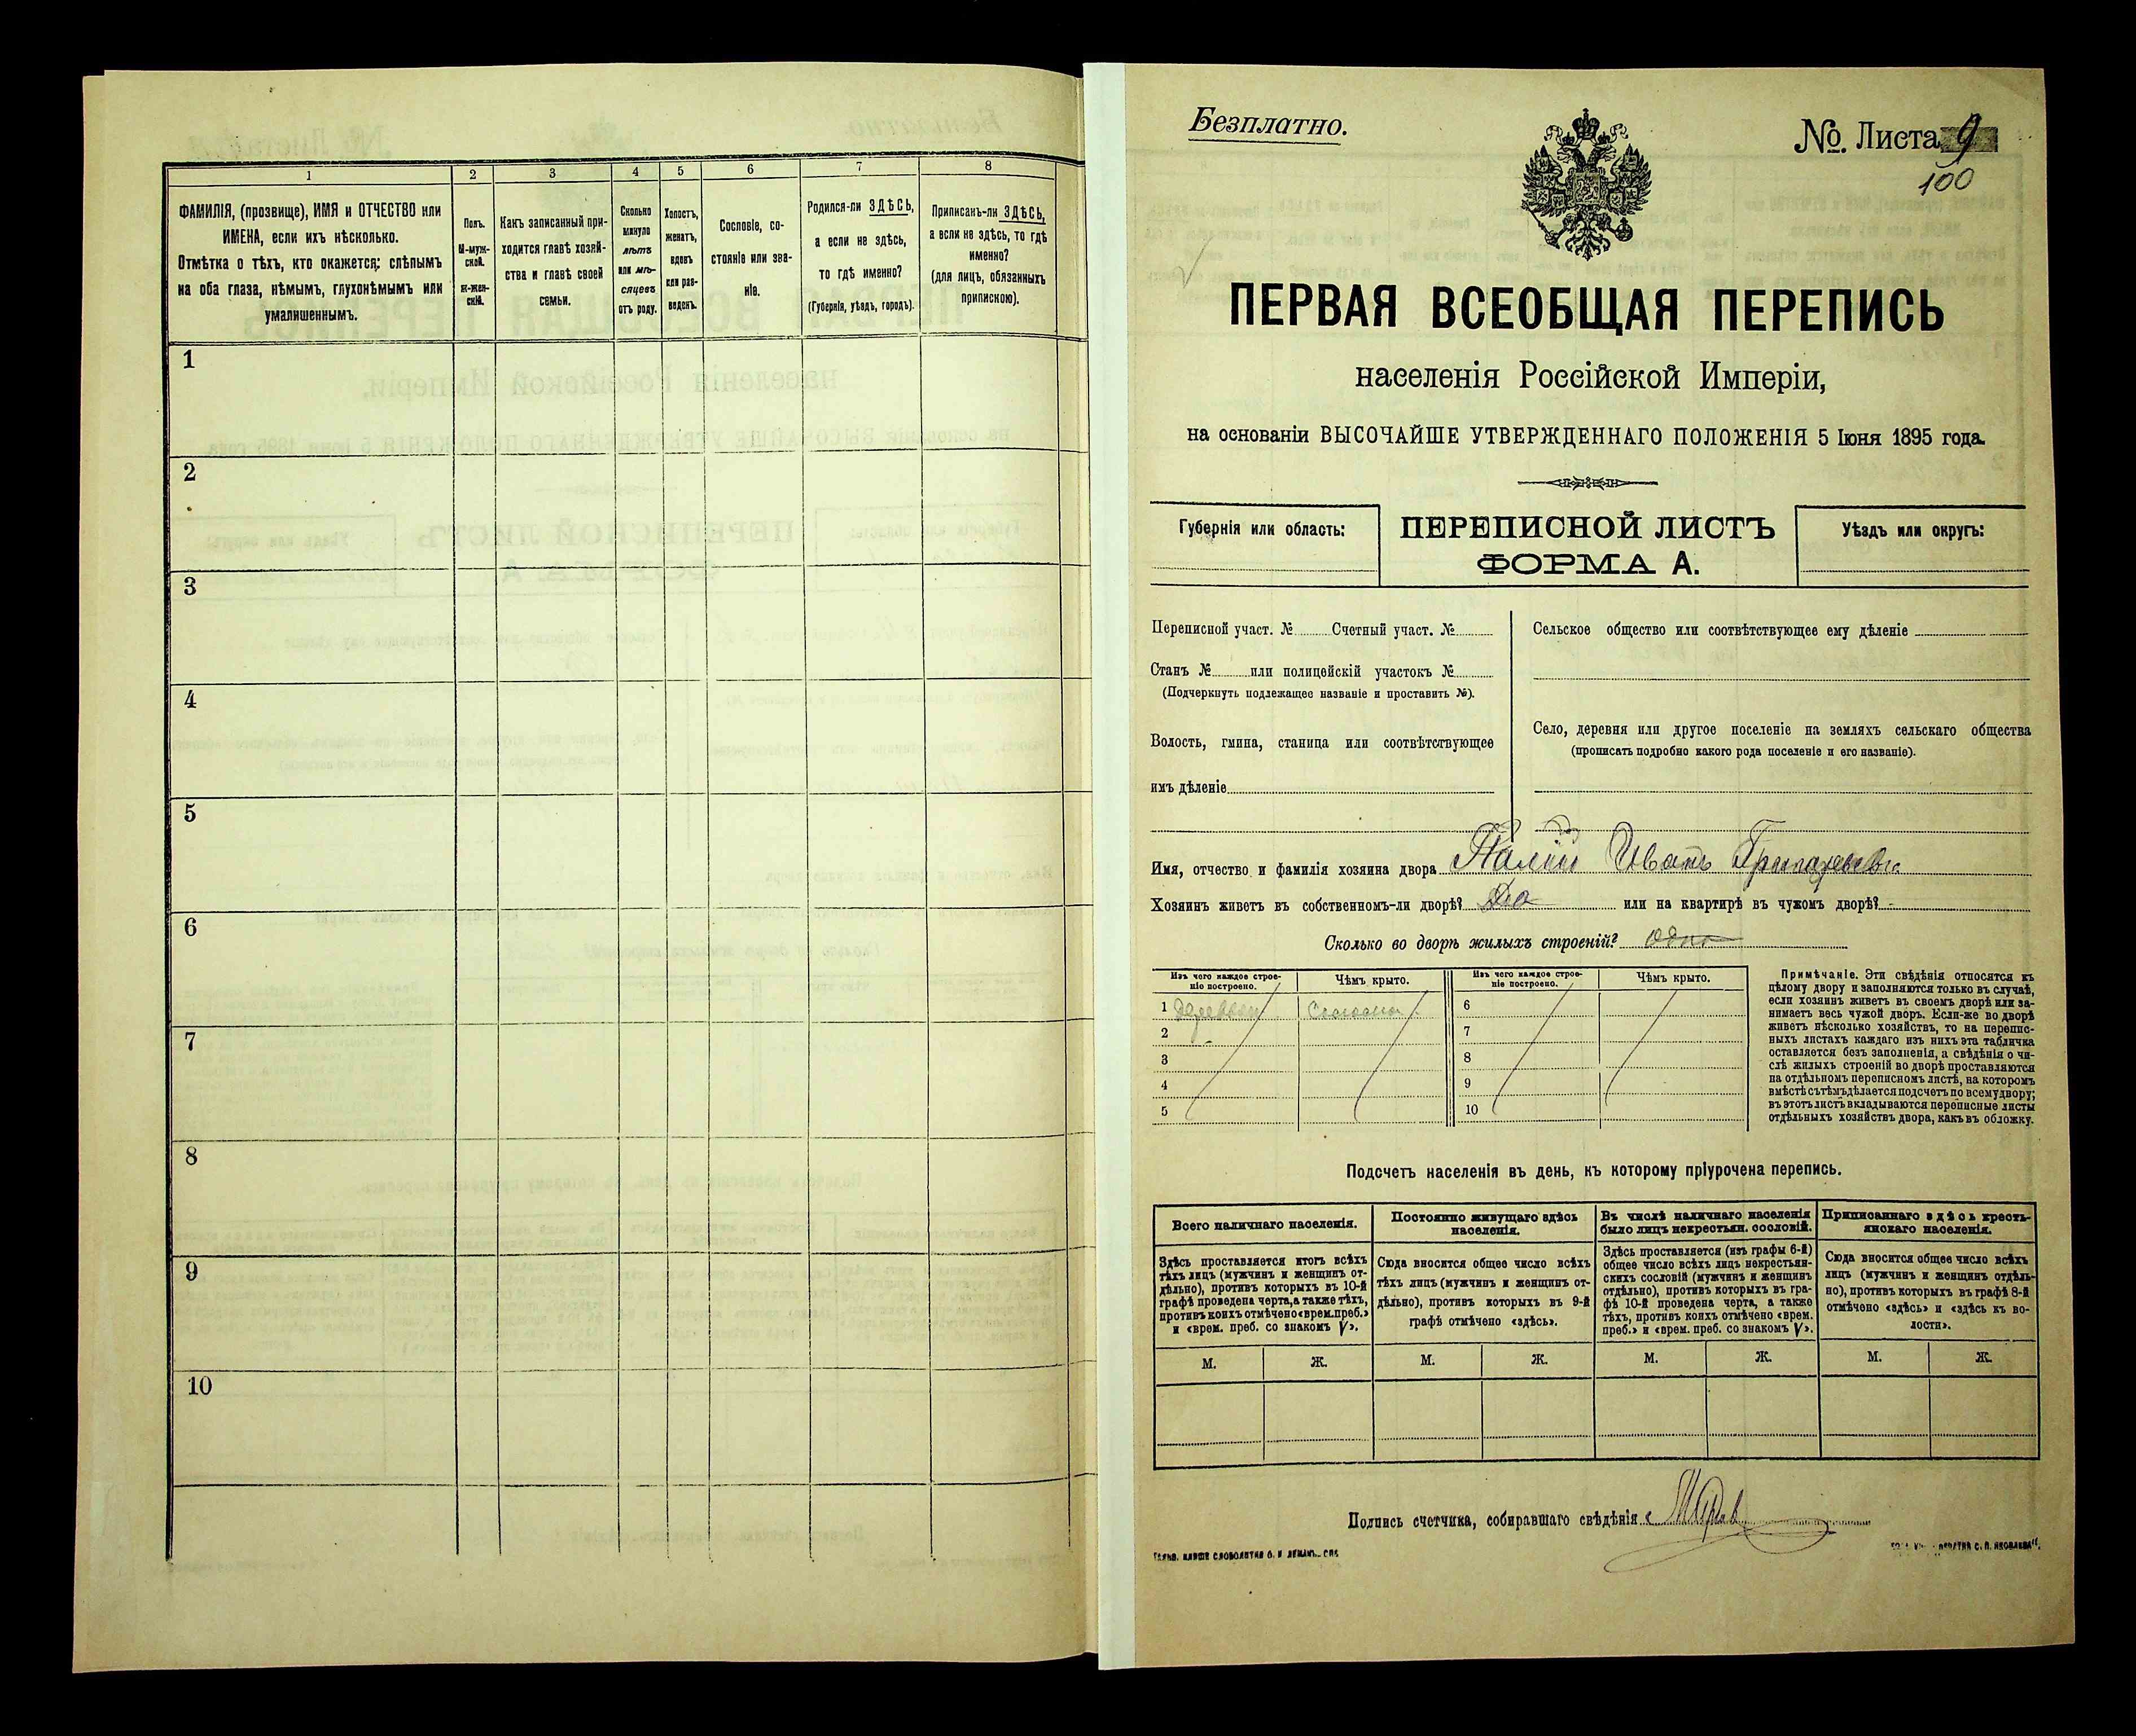 1
2
3
4
5
6
7
8
ФАМИЛІЯ, (прозвище), ИМЯ и ОТЧЕСТВО или
ИМЕНА, если ихъ нѣсколько.
Отмѣтка о тѣхъ, кто окажется: слѣпымъ
на оба глаза, нѣмымъ, глухонѣмымъ или
умалишеннымъ.
Полъ.
М-муж-
ской.
Ж-жен-
скій.
Какъ записанный при-
ходится главѣ хозяй-
ства и главѣ своей
семьи.
Сколько
минуло
лѣтъ
или мѣ-
сяцевъ
отъ роду.
Холостъ,
женатъ,
вдовъ
или раз-
веденъ.
Сословіе, со-
стояніе или зва-
ніе.
Родился-ли ЗДѢСЬ,
а если не здѣсь,
то гдѣ именно?
(Губернія, уѣздъ, городъ).
Приписанъ-ли ЗДѢСЬ,
а если не здѣсь, то гдѣ
именно?
(для лицъ, обязанныхъ
припискою).
1
2
3
4
5
6
7
8
9
10
Безплатно.
№. Листа 9
100
ПЕРВАЯ ВСЕОБЩАЯ ПЕРЕПИСЬ
населенія Россійской Имперіи,
на основаніи ВЫСОЧАЙШЕ УТВЕРЖДЕННАГО ПОЛОЖЕНІЯ 5 Іюня 1895 года.
Губернія или область:
ПЕРЕПИСНОЙ ЛИСТЪ
ФОРМА А.
Уѣздъ или округъ:
Переписной участ. № Счетный участ. №
Станъ № или полицейскій участокъ №
(Подчеркнуть подлежащее названіе и проставить №).
Волость, гмина, станица или соотвѣтствующее
имъ дѣленіе
Сельское общество или соотвѣтствующее ему дѣленіе
Село, деревня или другое поселеніе на земляхъ сельскаго общества
(прописать подробно какого рода поселеніе и его названіе).
Имя, отчество и фамилія хозяина двора Палій Иванъ
Хозяинъ живетъ въ собственномъ-ли дворѣ? Да или на квартирѣ въ чужомъ дворѣ? -
Сколько во дворѣ жилыхъ строеній? одно
Изъ чего каждое строе-
ніе построено.
Чѣмъ крыто.
Изъ чего каждое строе-
ніе построено.
Чѣмъ крыто.
1
2
3
4
5
6
7
8
9
10
Примѣчаніе. Эти свѣдѣнія относятся къ
цѣлому двору и заполняются только въ случаѣ,
если хозяинъ живетъ въ своемъ дворѣ или за-
нимаетъ весь чужой дворъ. Если-же во дворѣ
живетъ нѣсколько хозяйствъ, то на перепис-
ныхъ листахъ каждаго изъ нихъ эта табличка
оставляется безъ заполненія, а свѣдѣнія о чи-
слѣ жилыхъ строеній во дворѣ проставляются
на отдѣльномъ переписномъ листѣ, на которомъ
вмѣстѣ съ тѣмъ дѣлается подсчетъ по всему двору;
въ этотъ листъ вкладываются переписные листы
отдѣльныхъ хозяйствъ двора, какъ въ обложку.
Подсчетъ населенія въ день, къ которому пріурочена перепись.
Всего наличнаго населенія.
Постоянно живущаго здѣсь
населенія.
Въ числѣ наличнаго населенія
было лицъ некрестьян. сословій.
Приписаннаго здѣсь кресть-
янскаго населенія.
Здѣсь проставляется итогъ всѣхъ
тѣхъ лицъ (мужчинъ и женщинъ от-
дѣльно), противъ которыхъ въ 10-й
графѣ проведена черта, а также тѣхъ,
противъ коихъ отмѣчено «врем. преб.»
и «врем. преб. со знакомъ V».
Сюда вносится общее число всѣхъ
тѣхъ лицъ (мужчинъ и женщинъ от-
дѣльно), противъ которыхъ въ 9-й
графѣ отмѣчено «здѣсь».
Здѣсь проставляется (изъ графы 6-й)
общее число всѣхъ лицъ некрестьян-
скихъ сословій (мужчинъ и женщинъ
отдѣльно), противъ которыхъ въ гра-
фѣ 10-й проведена черта, а также
тѣхъ, противъ коихъ отмѣчено «врем.
преб.» и «врем. преб. со знакомъ V».
Сюда вносится общее число всѣхъ
лицъ (мужчинъ и женщинъ отдѣль-
но), противъ которыхъ въ графѣ 8-й
отмѣчено «здѣсь» и «здѣсь къ во-
лости».
М. Ж. М. Ж. М. Ж. М. Ж.
Подпись счетчика, собиравшаго свѣдѣнія